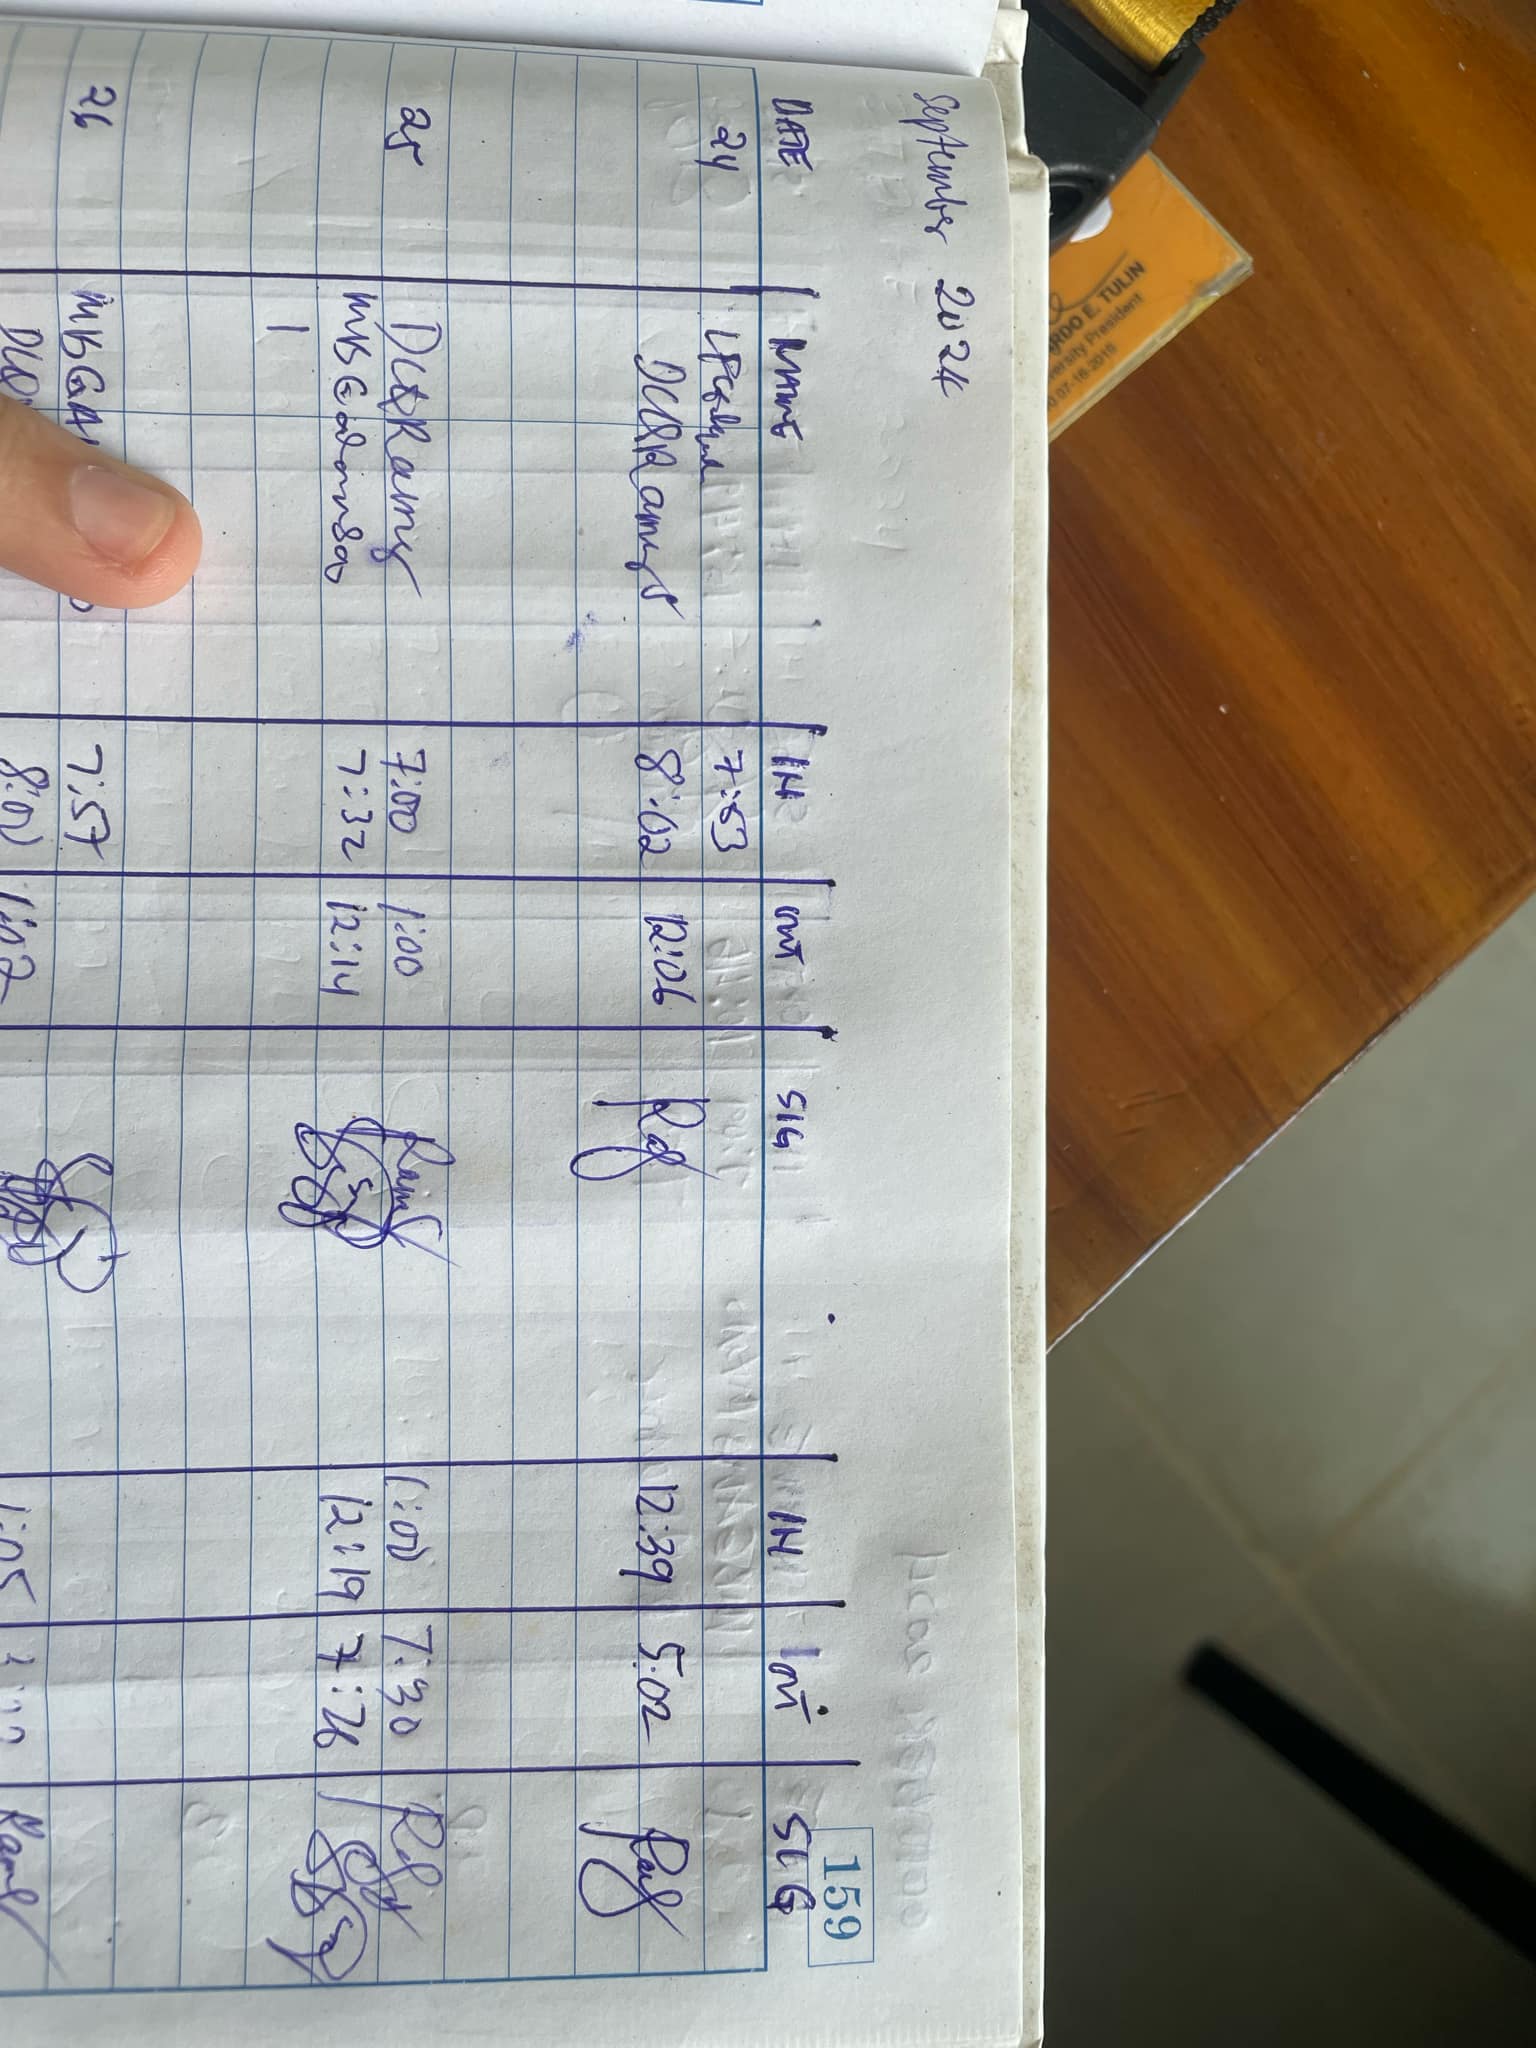 September 2024
159
DATE NAME IN OUT SIG IN OUT SIG
24 7:53
DLQRamos 8:02 12:06 12:39 5:02
25 DLQRamos 7:00 1:00 1:00 7:30
MBGalanga 7:32 12:14 12:19 7:26
26 MBGA 7:57
DLQ 8:00 1:02 1:05
RDO E. TULIN
versity President
07-16-2016